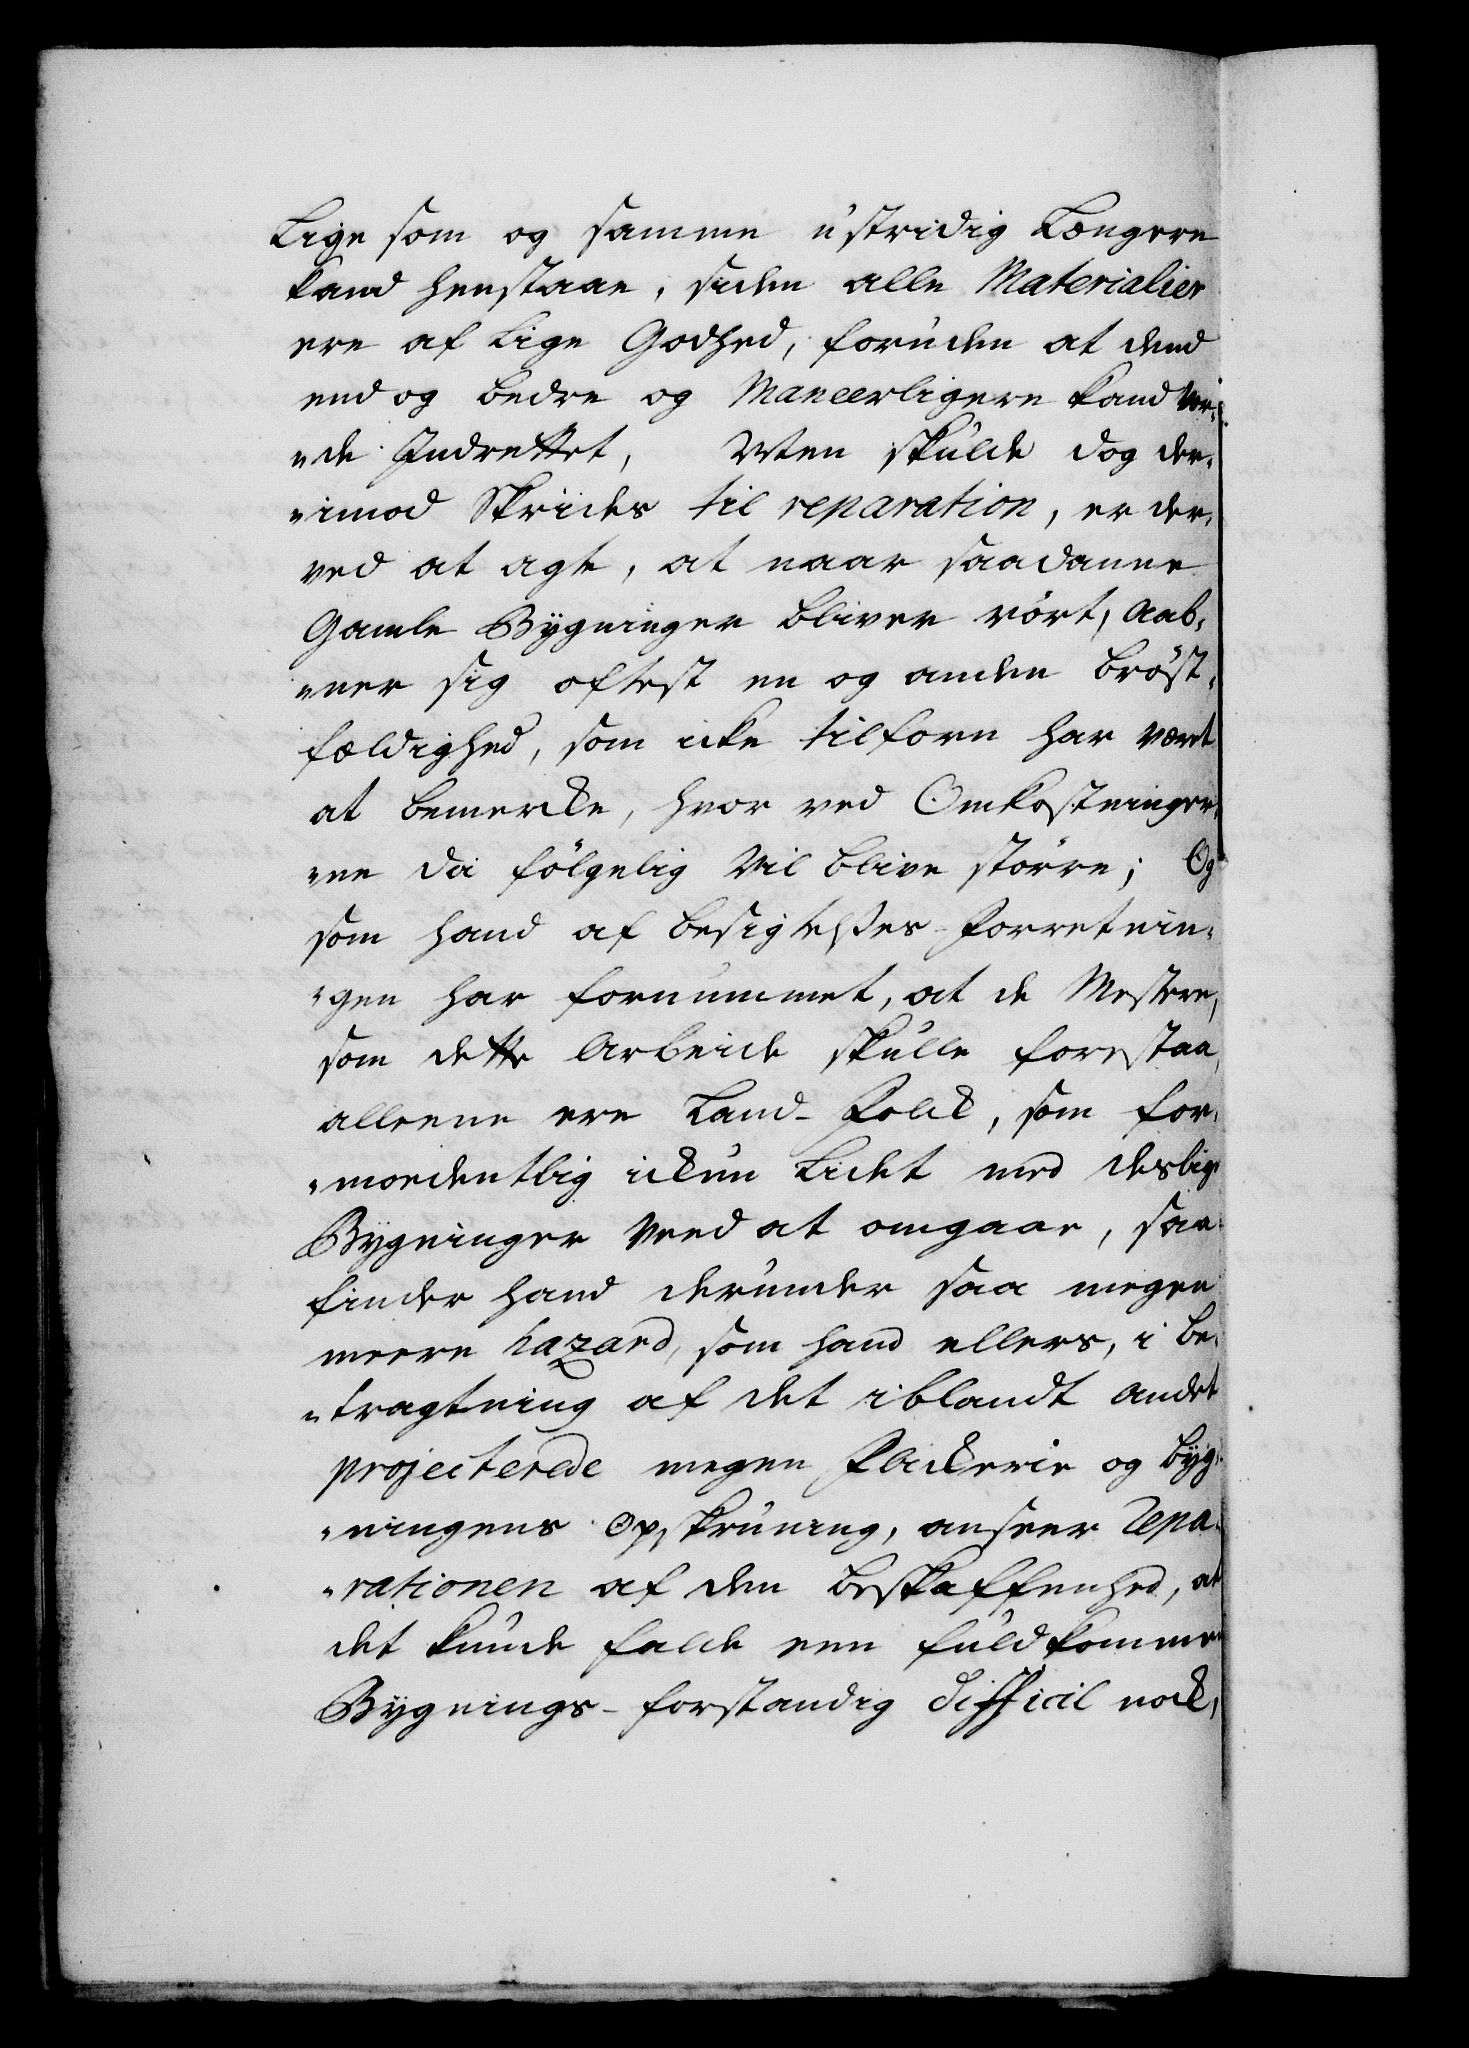 Lige som og samme ustridig Længere
kand henstaae, siden alle Materialier
ere af Lige Godhed, foruden at dend
end og bedre og Maneerligere kand vor„
„de Indrettet, Men skulde dog der„
„imod Skrides til reparation, er der„
ved at agte, at naar saadanne
Gamle Bygninger bliver rört, Aab„
„ner sig oftest en og anden bröst„
fældighed, som icke tilforn har vært
at bemercke, hvor ved Omkostninger„
„ne da fölgelig vil blive större; Og
som hand af besigtelses-Forretnin„
„gen har fornummet, at de Mestere,
som dette Arbeide skulle forestaa,
alleene ere Land-Folck, som for„
„moedentlig ickun Lidet med deslige
Bygninger veed at omgaae, saa
finder hand derunder saa megen
meere hazard, som hand ellers, i be„
„tragtning af det iblandt andet
projecterede megen Flickerie og byg„
„ningens Opskruning, anseer Repa„
„rationen af den beskaffenhed, at
det kunde falde een fuldkommen
Bygnings-forstandig difficil nock,